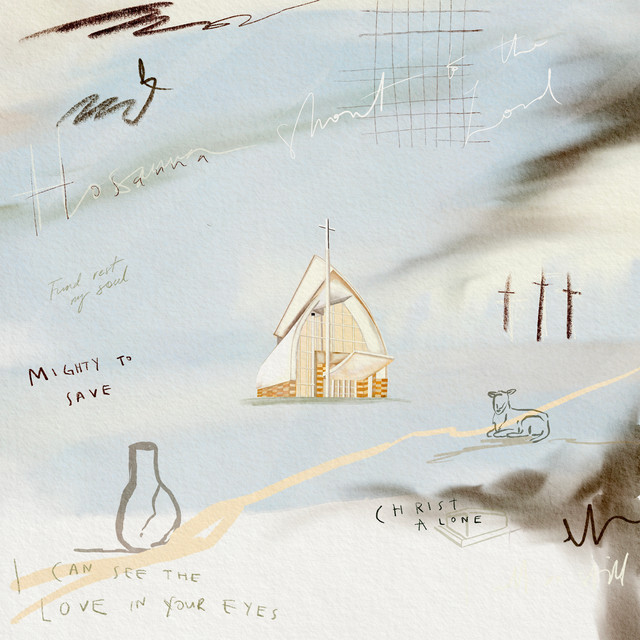 Hosanna Shout to the Lord
Find rest
my soul
MIGHTY TO
SAVE
CHRIST
ALONE
I CAN SEE THE
LOVE IN YOUR EYES